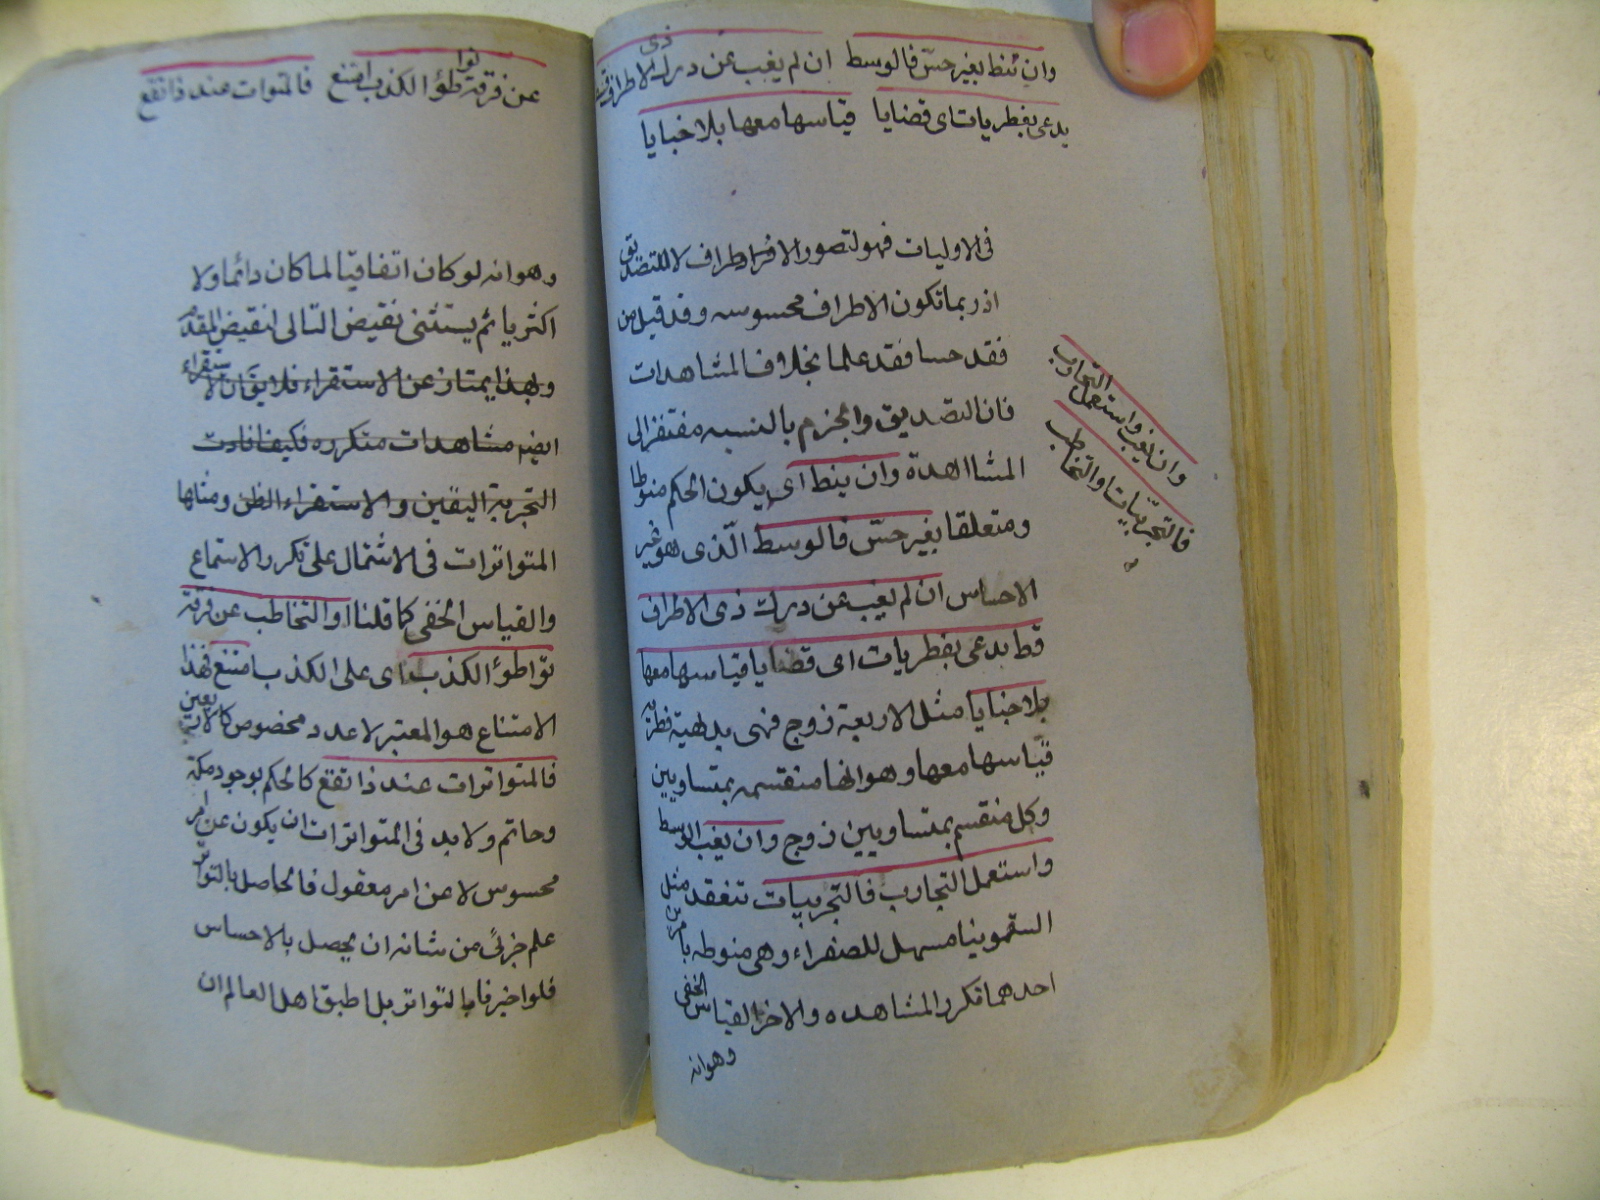 وان تنط بغير حسّ فالوسط ان لم يغب عن درك ذى الاطراف قط
يدعى بفطريات اى قضايا قياسها معها بلا خبايا
وان يغب واستعمل التجارب
فالتجربيات والتخاطب
فى الاوليات فهو لتصور الاطراف لا للتصديق
اذ ربما تكون الاطراف محسوسه وقد قيل من
فقد حسا فقد علما بخلاف المشاهدات
فان التصديق والجزم بالنسبه مفتقر الى
المشااهدة وان ينط اى يكون الحكم منوطا
ومتعلقا بغير حسّ فالوسط الّذى هو غير
الاحساس ان لم يغب عن درك ذى الاطراف
قط يدعى بفطريات اى قضايا قياسها معها
بلا خبايا مثل الاربعة زوج فهى بديهية فطرية
قياسها معها وهو انها منقسمه بمتساويين
وكل منقسم بمتساويين زوج وان يغب الوسط
واستعمل التجارب فالتجربيات تنعقد مثل
السقمونيا مسهل للصفراء وهى منوطه بامرين
احدهما تكرر المشاهده والاخر القياس الخفى
وهوانه
عن فرقة تواطؤ الكذب امتنع فالمتوات عند ذا تقع
وهو انه لو كان اتفاقيا لما كان دائما ولا
اكثريا ثم يستثنى نقيض التالى لنقيض المقدم
وبهذا يمتاز عن الاستقراء فلا يق ان الاستقراء
ايضم مشاهدات متكرره فكيف افادت
التجربة اليقين والاستقراء الظن ومثلها
المتواترات فى الاشتمال على تكرر الاستماع
والقياس الخفى كما قلنا او التخاطب عن فرقة
تواطؤ الكذب اى على الكذب امتنع فهذا
الامتناع هو المعتبر لا عدد مخصوص كالاربعين
فالمتواترات عند ذا تقع كالحكم بوجود مكة
وحاتم ولا بد فى المتواترات ان يكون عن امر
محسوس لا عن امر معقول فالحاصل بالتواتر
علم جزئى من شانه ان يحصل بالاحساس
فلو اخبرنا بالتواتر بل اطبق اهل العالم ان